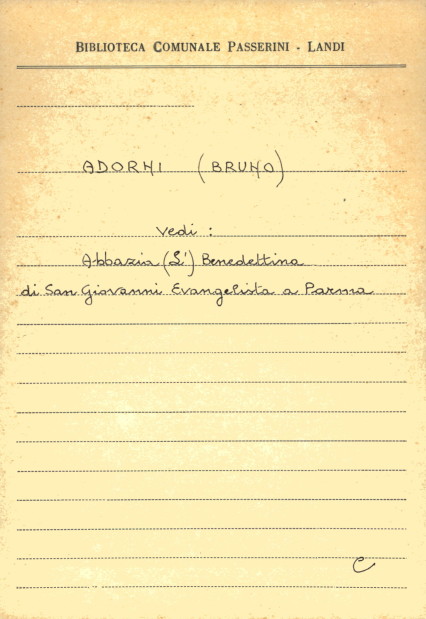 BIBLIOTECA COMUNALE PASSERINI - LANDI
ADORNI (BRUNO)
Vedi :
Abbazia (L') Benedettina
di San Giovanni Evangelista a Parma
C